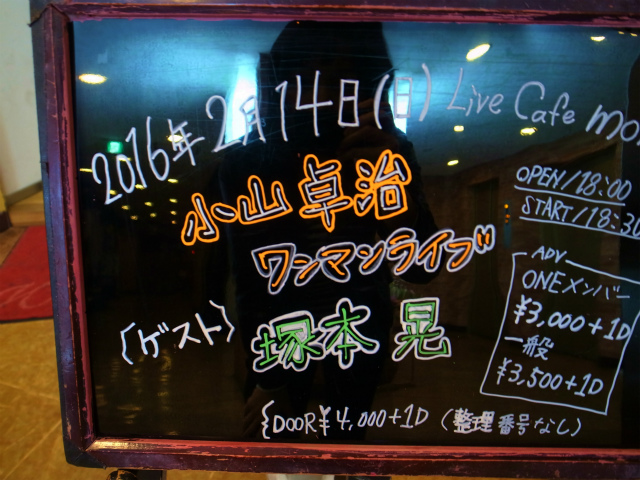 2016年2月14日(日) Live Cafe mo
OPEN/18:00
START/18:30
小山卓治
ワンマンライブ
〔ゲスト〕 塚本晃
ADV
ONEメンバー
¥3,000+1D
一般
¥3,500+1D
{DOOR¥4,000+1D (整理番号なし)